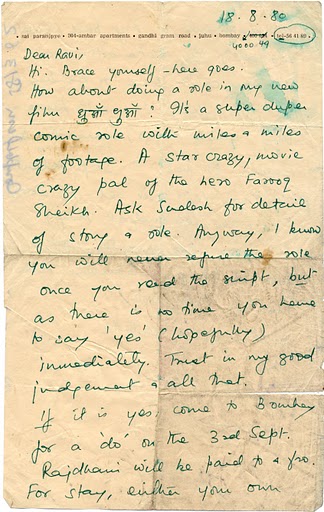 18.8.80
• sai paranjpye • 204-ambar apartments • gandhi gram road • juhu • bombay
tel-56 41 80 •
4000 49
Dear Ravi,
Hi. Brace yourself - here goes.
How about doing a role in my new
film धुआँ धुआँ? Its a super duper
comic role with miles & miles
of footage. A star crazy, movie
crazy pal of the hero Farooq
Sheikh. Ask Sudesh for detail
of story & role. Anyway, I know
you will never refuse the role
once you read the script, but
as there is no time you have
to say 'yes' (hopefully)
immediately. Trust in my good
judgement & all that.
If it is yes, come to Bombay
for a 'do' on the 3rd Sept.
Rajdhani will be paid to & fro.
For stay, either your own